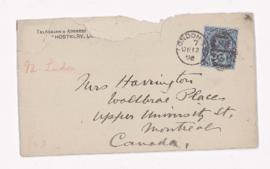 TELEGRAPHIC ADDRESS
"HOSTELRY, L
92. London
LONDON
7
98
Mrs Harrington
Walbrae Place
Upper University St,
Montreal
Canada,